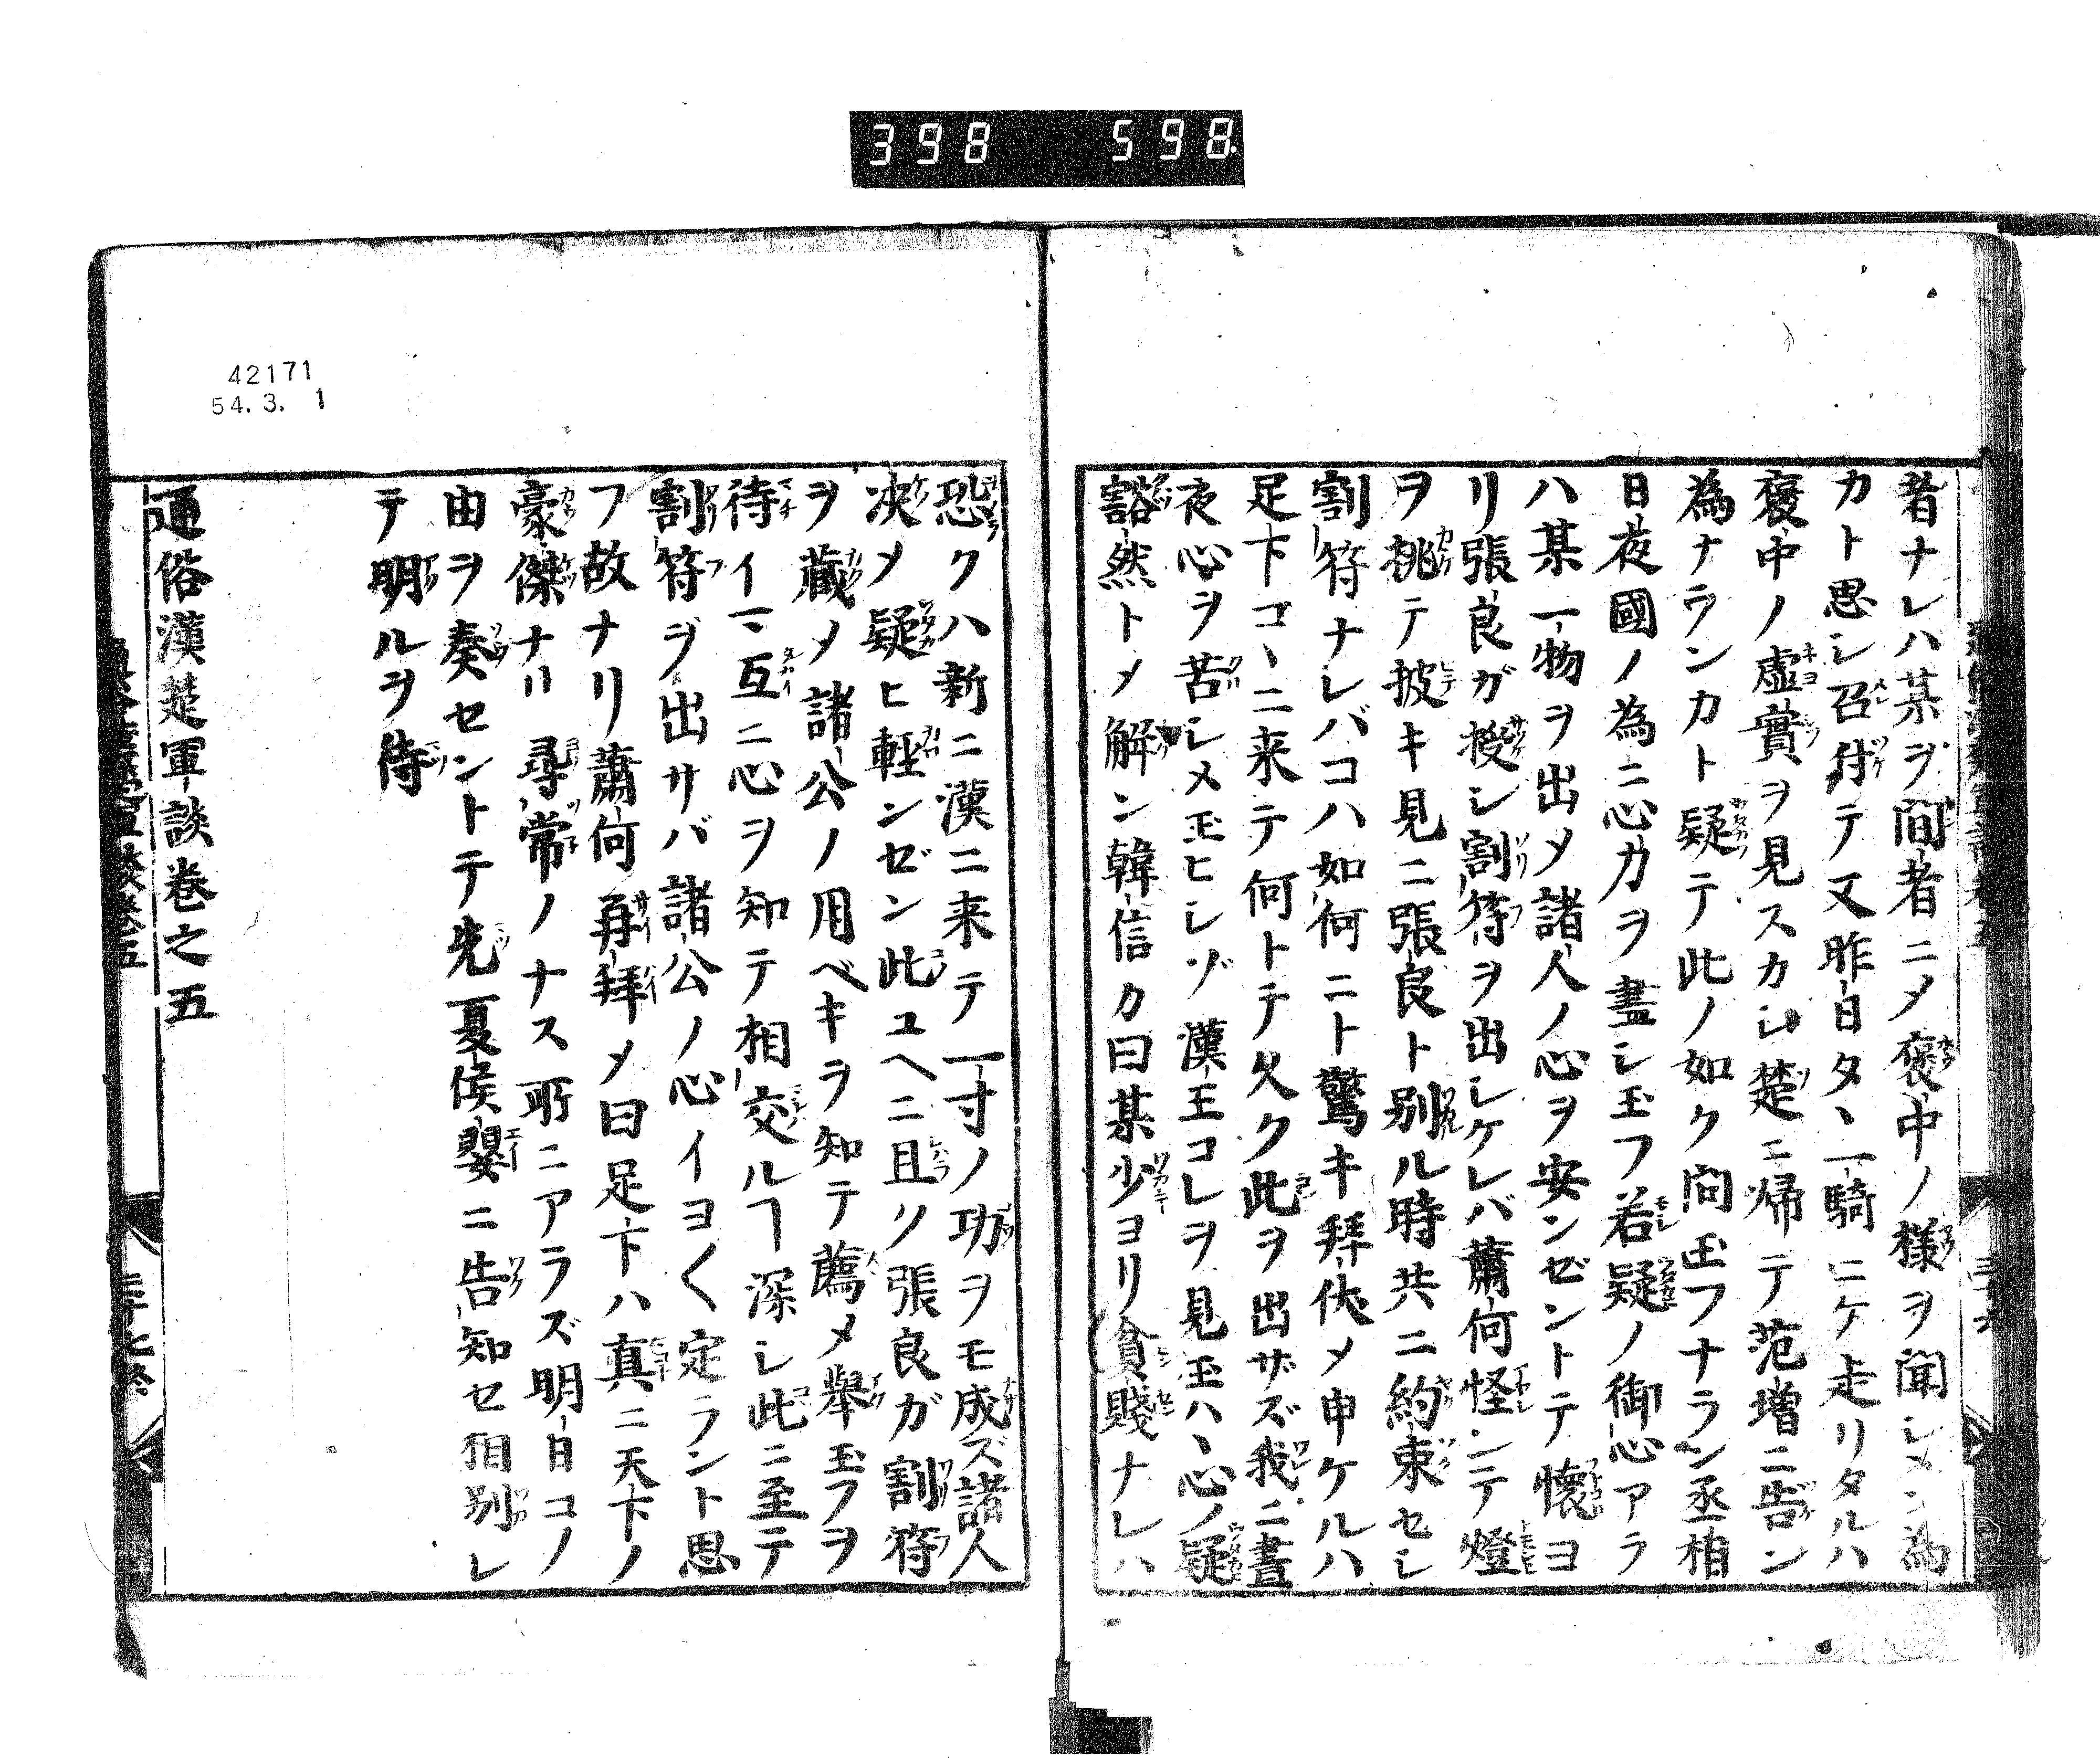 398 598
者ナレハ某ヲ間者ニメ褒中ノ様ヲ聞シメン為
カト思シ召付テ又昨日タヽ一騎ニケ走リタルハ
褒中ノ虚實ヲ見スカシ楚ニ帰テ范増ニ告ン
為ナランカト疑テ此ノ如ク問玉フナラン丞相
日夜國ノ為ニ心力ヲ盡シ玉フ若疑ノ御心アラ
ハ某一物ヲ出メ諸人ノ心ヲ安ンゼントテ懐ヨ
リ張良ガ授シ割符ヲ出シケレバ蕭何怪ンテ燈
ヲ挑テ披キ見ニ張良ト別ル時共ニ約束セシ
割符ナレバコハ如何ニト驚キ拜伏メ申ケルハ
足下コヽニ来テ何トテ久ク此ヲ出サズ我ニ晝
夜心ヲ苦シメ玉ヒシゾ漢王コレヲ見玉ハヽ心ノ疑
豁然トメ解ン韓信カ曰某少ヨリ貧賤ナレハ
恐クハ新ニ漢ニ来テ一寸ノ功ヲモ成ズ諸人
决メ疑ヒ軽ンゼン此ユヘニ且ソノ張良ガ割符
ヲ蔵メ諸公ノ用ベキヲ知テ薦メ擧玉フヲ
待イマヽ互ニ心ヲ知テ相交ルヿ深シ此ニ至テ
割符ヲ出サバ諸公ノ心イヨ〱定ラント思
フ故ナリ蕭何再拜メ曰足下ハ真ニ天下ノ
豪傑ナリ尋常ノナス所ニアラズ明日コノ
由ヲ奏セントテ先夏侯嬰ニ告知セ相別レ
テ明ルヲ待
通俗漢楚軍談巻之五
42171
54.3. 1